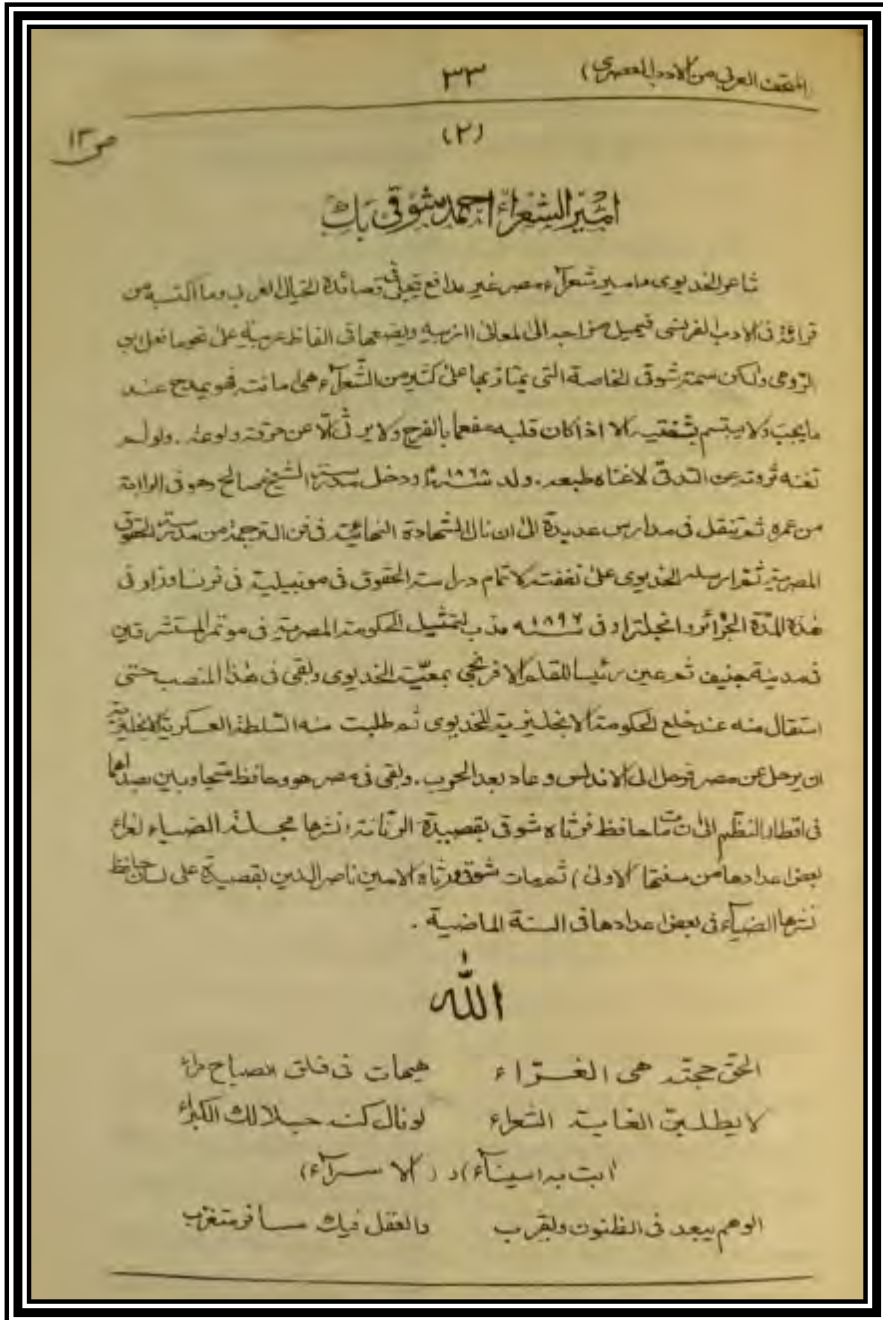 المثقف العربي من الادب العصري) ٣٣
(٢) ص ١٣
امير الشعراء احمد شوقي بك
شاعر الخديوى وامير شعراء مصر غير مدافع تجلى فى قصائده الخيال العربى وما اكتسبه من
قراءته فى الادب الفرنسى فيميل مزاجه الى المعانى الافرنجيه ويضعها فى الفاظ عربية على نحو ما فعل ابن
الرومى ولكن سمة شوقى الخاصة التى يمتاز بها على كثير من الشعراء هى فهو يمدح عند
ما يجب ولا يبتسم بشفتيه الا اذا كان قلبه مفعما بالفرح ولا يرثى الا عن حرقة ولوعه . ولو لم
تغنه ثروته عن لاغناه طبعه . ولد سنة ١٨٦٨ م ودخل مكتب الشيخ صالح وهو فى الرابعة
من عمره ثم تنقل فى مدارس عديدة الى ان نال الشهادة النهائية فى فن الترجمة من مدرسة الحقوق
المصرية ثم ارسله الخديوى على نفقته لاتمام دراسة الحقوق فى مونبيلية فى فرنسا وزار فى
هذه المدة الجزائر وانجلترا وفى سنه ١٨٩٧ ندب لتمثيل الحكومة المصرية فى موتمر المستشرقين
فى مدينة جنيف ثم عين رئيسا للقلم الافرنجي بمعيّة الخديوى وبقى فى هذا المنصب حتى
استقال منه عند خلع الحكومة الانجليزية للخديوى ثم طلبت منه السلطة العسكرية الانجليزية
ان يرحل عن مصر فرحل الى الاندلس وعاد بعد الحرب . وبقى فى مصر هو وحافظ متجاوبين بصداهما
فى اقطار النظم الى ان مات حافظ فرثاه شوقى بقصيدة الرنانة نشرها مجلة الضياء
بعض اعدادها من سنتها الاولى) ثم مات شوقى ورثاه الامين ناصر الدين بقصيدة على لسان حافظ
نشرها الضياء فى بعض اعدادها فى السنة الماضية .
الله
الحق حجته هى الغراء هيهات فى فلق الصباح مراء
لا يطلبن الغاية الشعراء لو نال كنه جلالك الكبراء
ابت به (سيناء) و (الاسراء)
الوهم يبعد فى الظنون ويقرب والعقل فيك مسافر متغرب